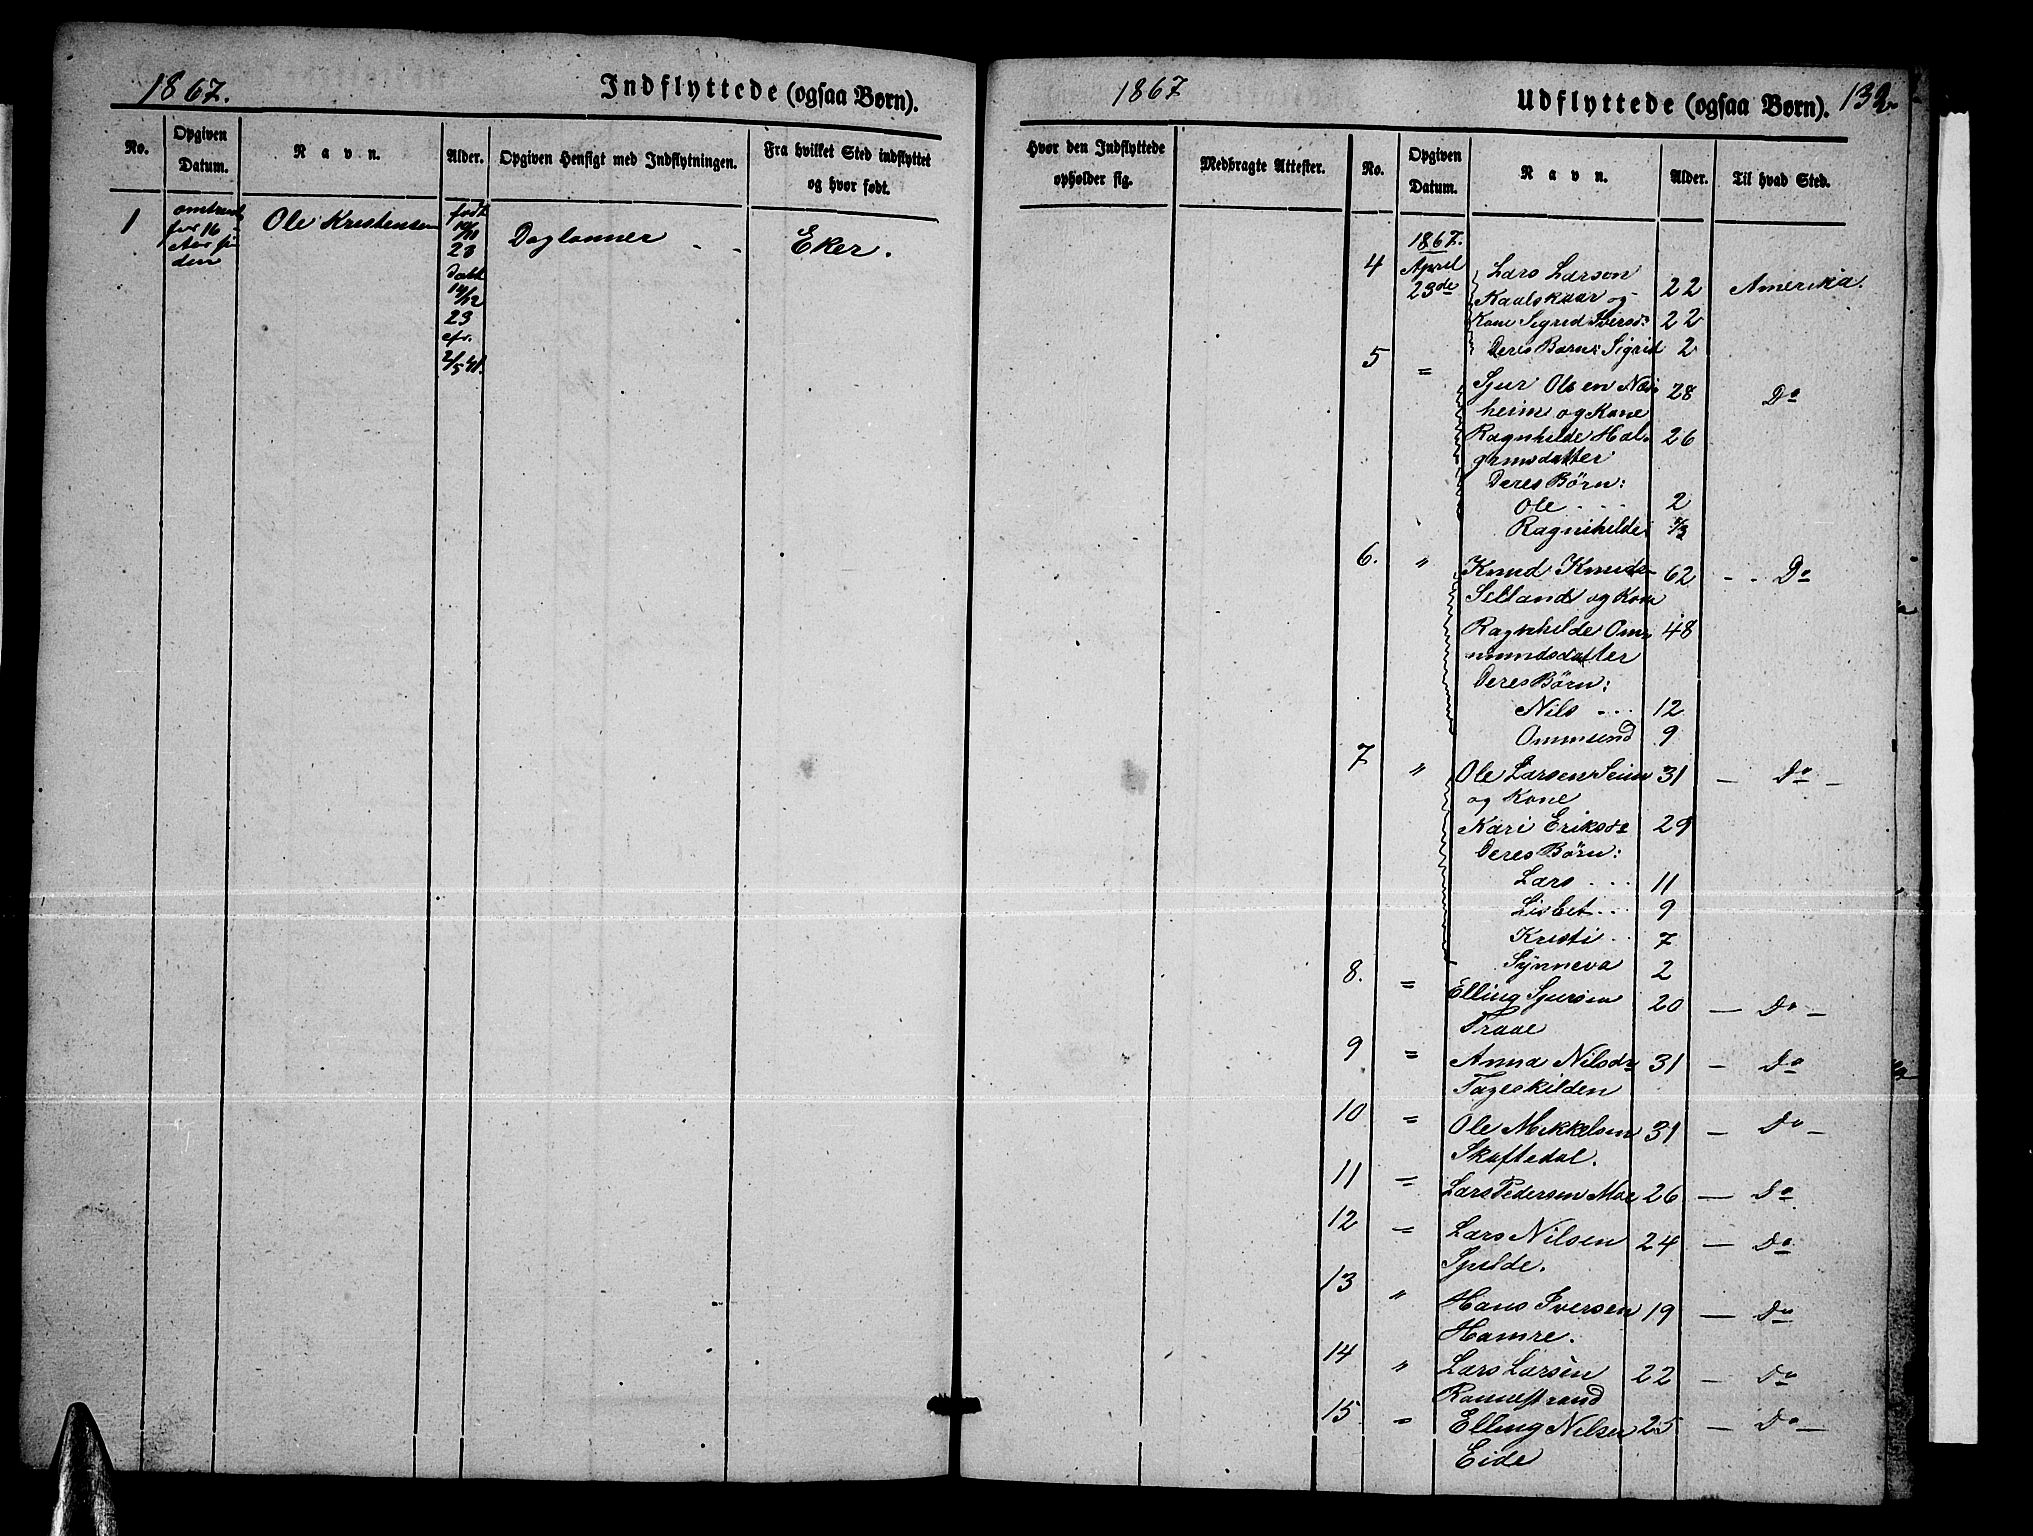 1867.
Indflyttede (ogsaa Børn).
No.
Opgiven Datum.
Navn.
Alder.
Opgiven Hensigt med Indflytningen.
Fra hvilket Sted indflyttet
og hvor født.
1
for 16
Aar si-
den
Ole Kristensen
født
23
Døbt
14/12
23
cfr.
2/5 41.
Daglønner
Eker.
1867
Udflyttede (ogsaa Børn).
132
Hvor den Indflyttede
opholder sig.
Medbragte Attester.
No.
Opgiven
Datum.
Navn.
Alder.
Til hvad Sted.
1867.
4 April Lars Larson
23de Kaalskaar og 22 Amerika.
Kone Sigrid Iversd: 22
Deres Barn: Sigrid 2
5 = Sjur Olsen Næs-
heim og Kone 28 Do
Ragnhilde Hal- 26
grimsdatter
Deres Børn:
Ole 2
Ragnhilde
6. " Knud Knuds- 62 Do
Selland og Kone
Ragnhilde Om- 48
mundsdatter
Deres Børn:
Nils 12
Ommund 9
7 " Ole Larsen Seim 31 — Do —
og Kone
Kari Eriksdr 29
Deres Børn:
Lars 11
Lisbet 9
Kristi 7
Synneva 2
8. = Elling Sjursen 20 — Do —
Traae
9 = Anna Nilsdr 31 — Do
Tageskilden
10 = Ole Mikkelsen 31 — Do —
Skaftedal.
11 = Lars Pedersen Moe 26 — Do
12 = Lars Nilsen 24 — Do
Spilde.
13 " Hans Iversen 19 — Do
Hamre.
14 " Lars Larsen 22 — Do
Rannestrand
15. = Elling Nilsen 25 — Do —
Eide